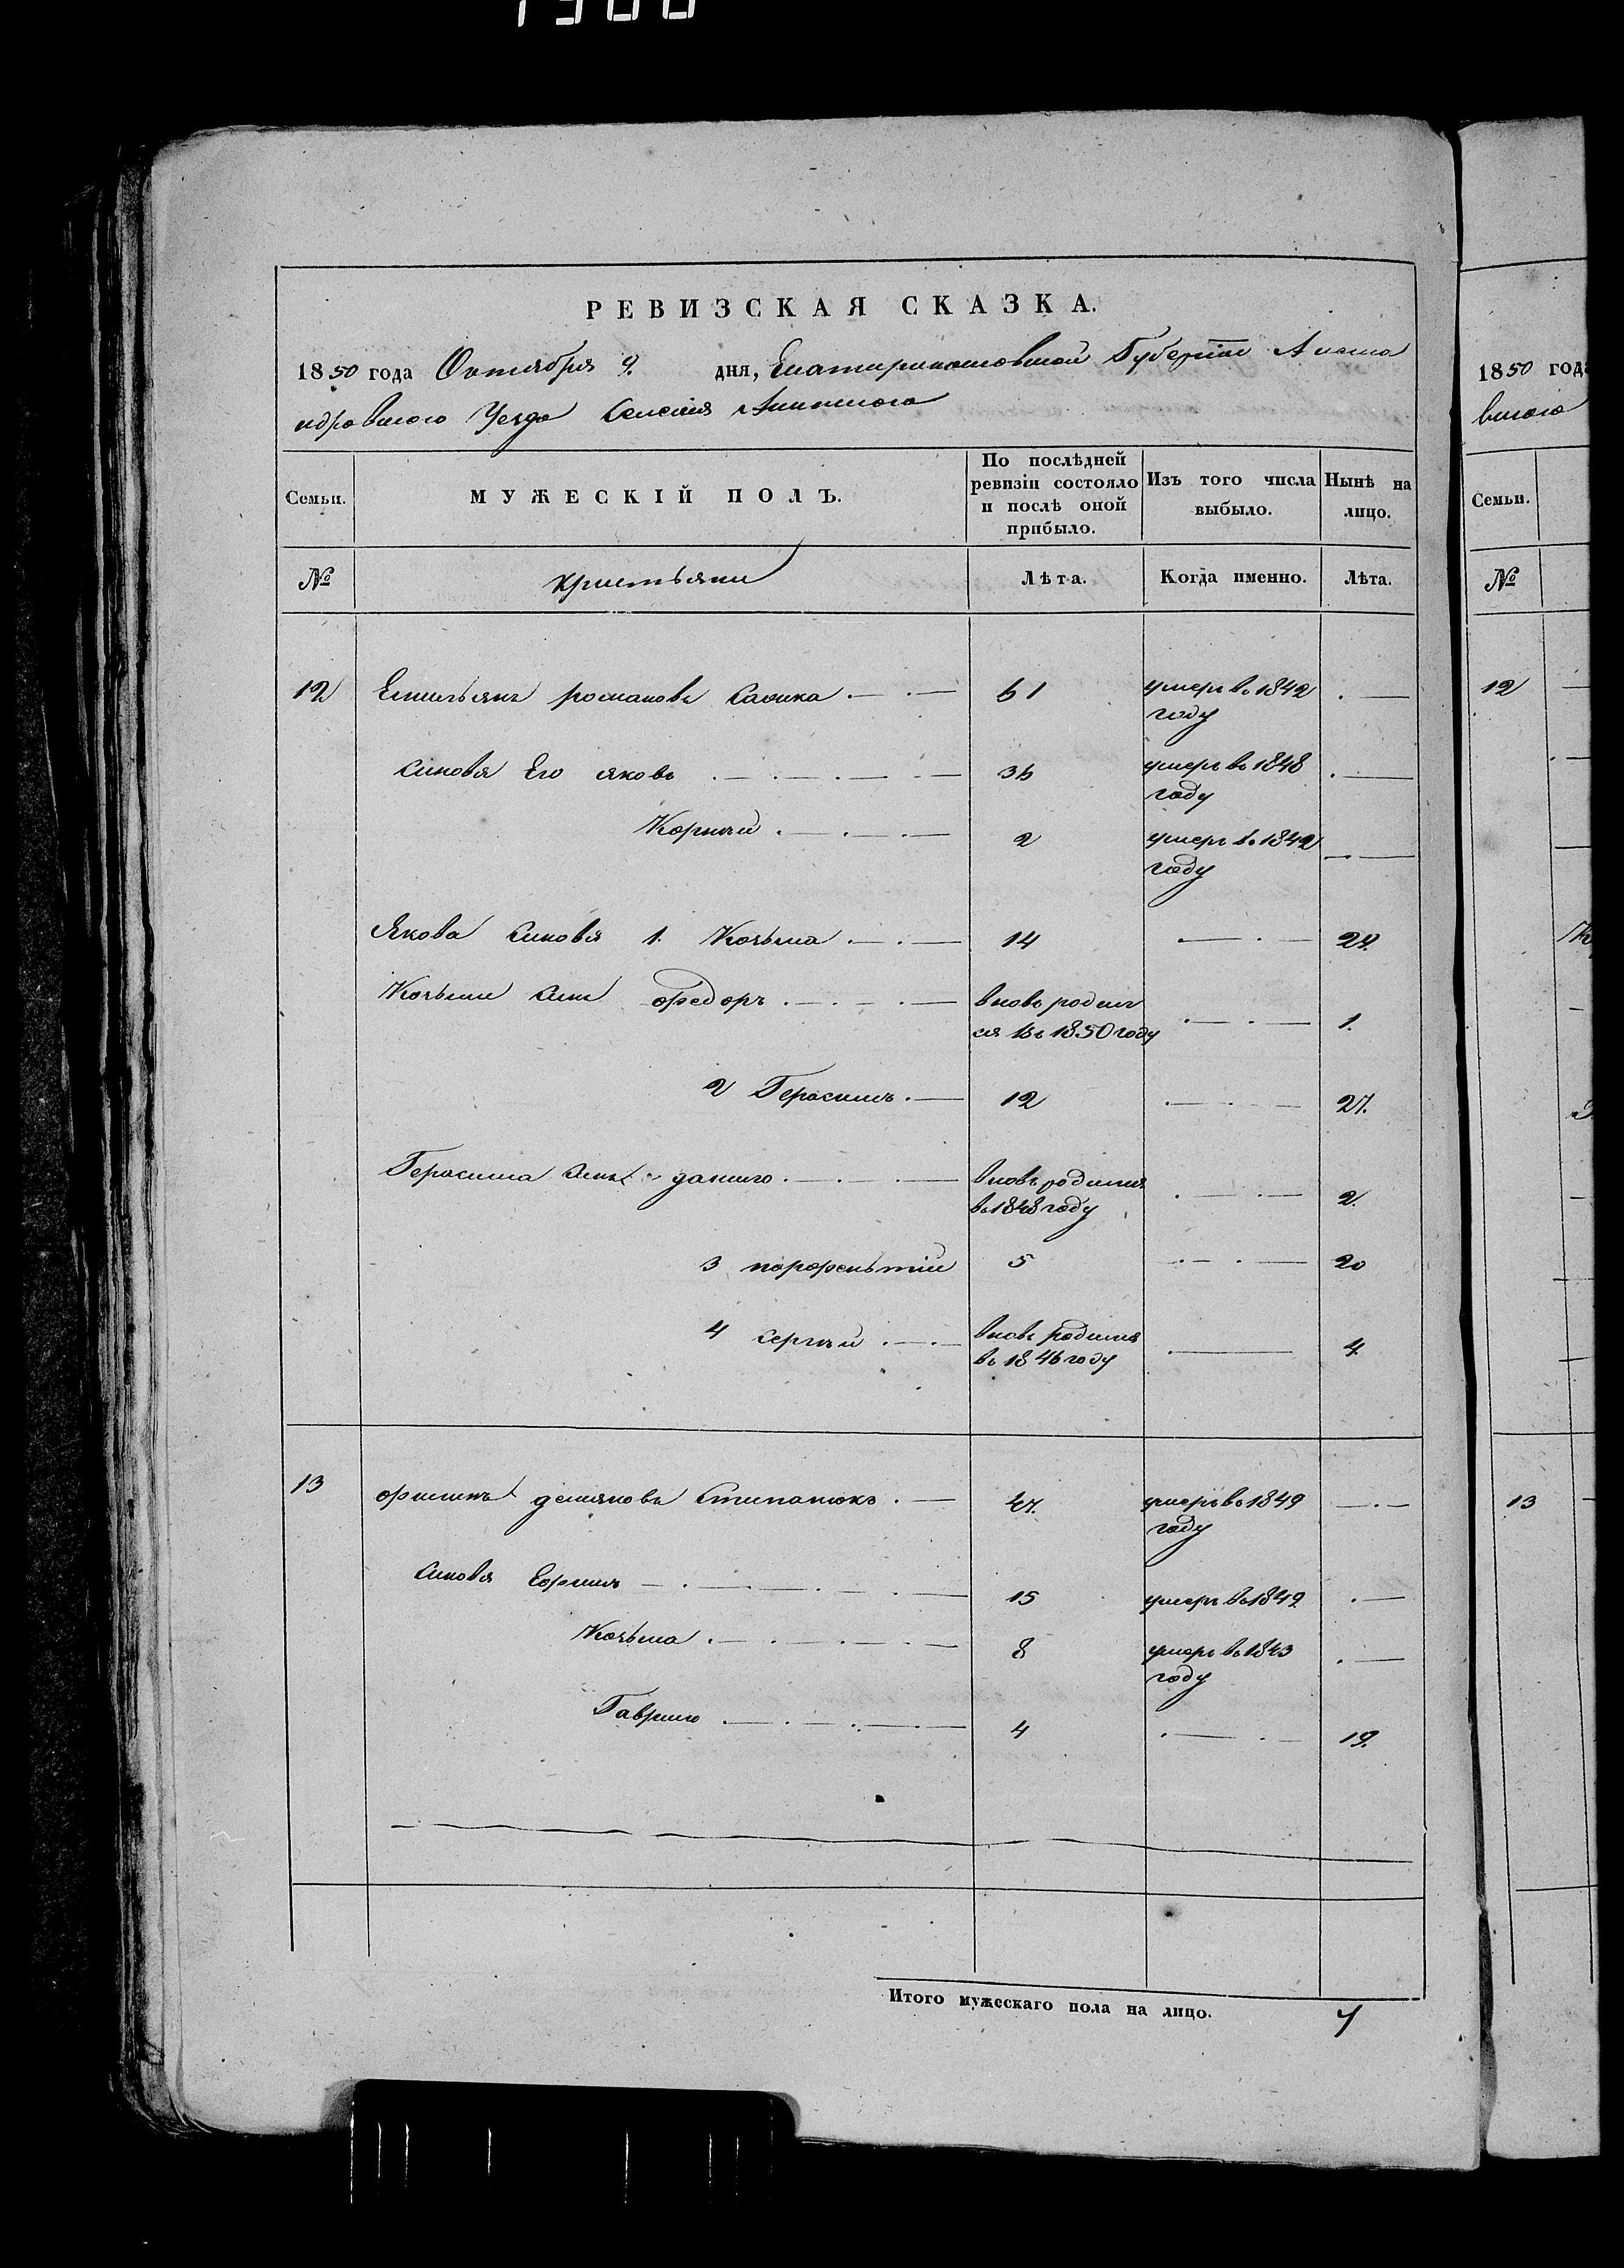 РЕВИЗСКАЯ СКАЗКА.
1850 года Октября 9. дня, Екатеринославской Губернии Алекса
ндровского Уезда Селения
Семьи. МУЖЕСКІЙ ПОЛЪ. По послѣдней ревизіи состояло и послѣ оной прибыло. Изъ того числа выбыло. Нынѣ на лицо.
№ кристьяни Лѣта. Когда именно. Лѣта.
12 Емильянъ романовъ Савика 61 умеръ въ 1842 году
Синовя Его яковъ 36 умеръ въ 1848 году
Корней 2 умеръ въ 1842 году
Якова синовя 1. Козьма 14 29.
Козьми син федоръ вновь родил ся въ 1850 году 1.
2 Герасимъ 12 27.
Герасима синъ данило вновь родился въ 1848 году 2.
3 парфентій 5 20
4 сергѣй вновь родился въ 1846 году 4
13 филипъ демяновъ Стипанюкъ 47. умеръ въ 1849 году
Синовя Ефимъ 15 умеръ въ 1849
Козьма 8 умеръ въ 1843 году
Гаврило 4 19.
Итого мужескаго пола на лицо. 7
1850 года
вского
Семьи.
№
12
13